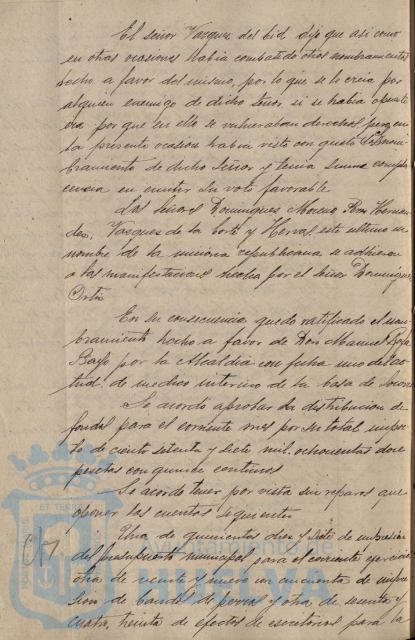 El señor Vazquez del Cid dijo que asi como
en otras ocasiones habia combatido otros nombramientos
hecho a favor del mismo, por lo que se le creia por
alguien enemigo de dicho señor, si se habia opuesto
era por que en ello se vulneraban derechos, pero en
la presente ocasión habia visto con gusto el nom
bramiento de dicho señor y tenia suma compla
cencia en emitir su voto favorable.
Los Señores Dominguez Moreno, Hernan
dez, Vazquez de la Corte y Herval, este ultimo en
nombre de la minoria republicana se adhieren
a las manifestaciones hechas por el señor Dominguez
Ortiz
En su consecuencia quedo ratificado el nom
bramiento hecho a favor de Don Manuel
por la Alcaldia con fecha uno del ac
tual, de medico interino de la Casa de Socorro
Se acordo aprobar la distribucion de
fondos para el corriente mes por su total impor
te de ciento setenta y siete mil, ochocientas doce
pesetas con quince centimos
Se acordo tener por vista sin reparos que
oponer las cuentas siguientes
Una de quinientas diez y siete de impresión
del presupuesto municipal para el corriente ejercicio
otra de veinte y nueve con cincuenta de impre
sion de bandos de perros y otra de sesenta y
cuatro, treinta de efectos de escritorios para la